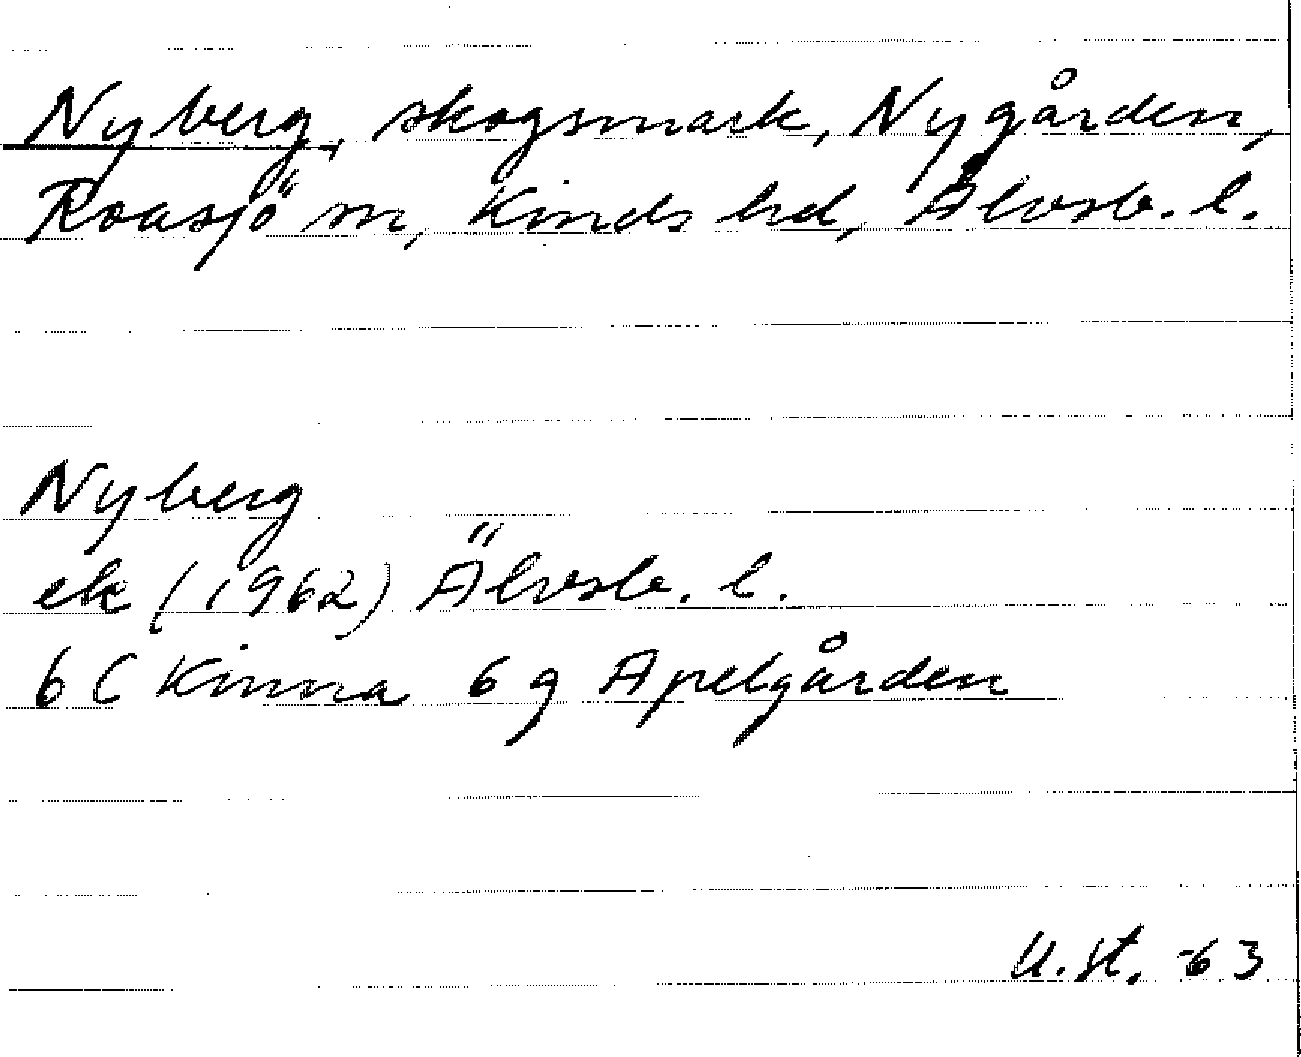 Nyberg, skogsmark, Nygården,
Roasjö sn, Kinds hd, Älvsb. l.
Nyberg
ek (1962) Älvsb. l.
6 C Kinna 6 g Apelgården
U.St. -63